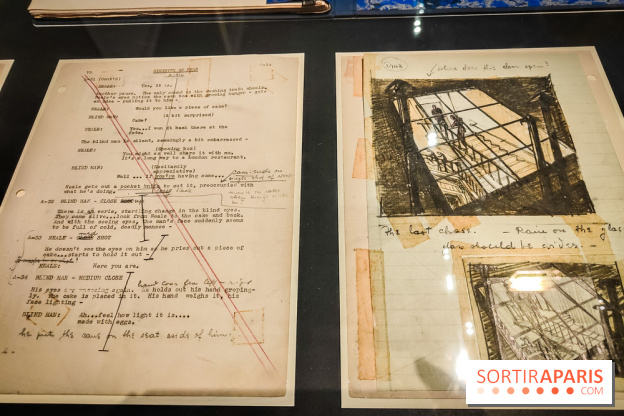 MINISTRY OF FEAR
NEALE: Yes, it is.
Another pause. The only sound is the droning train wheels.
Neale's eyes notice the cake box with growing hunger - gets
an idea - pulling it to him -
NEALE: Would you like a piece of cake?
BLIND MAN: (A bit surprised)
Cake?
NEALE: Yes...I won it back there at the
fete.
The blind man is silent, seemingly a bit embarrassed -
NEALE: (Opening box)
Might as well share it with me.
It's a long way to a London restaurant.
BLIND MAN: (Hesitantly
appreciative)
Well ... if you're having some...
Neale gets out a pocket knife to cut it, preoccupied with
what he's doing.
A-32 BLIND MAN - CLOSE SHOT
There is an eerie, startling change in the blind eyes.
They come alive...look from Neale to the cake and back.
And with the seeing eyes, the man's face suddenly seems
to be full of cold, deadly menace -
A-33 NEALE - SHOT
He doesn't see the eyes on him as he pries out a piece of
cake...starts to hold it out -
NEALE: Here you are.
A-34 BLIND MAN - MEDIUM CLOSE
His eyes are unseeing again. He holds out his hand groping-
ly. The cake is placed in it. His hand weighs it, his
face lighting -
BLIND MAN: Ah...feel how light it is....
made with eggs.
he puts the cane on the seat aside of him.
does this door open?
The last chase. - Rain on the glass
door should be
SORTIRAPARIS
.COM